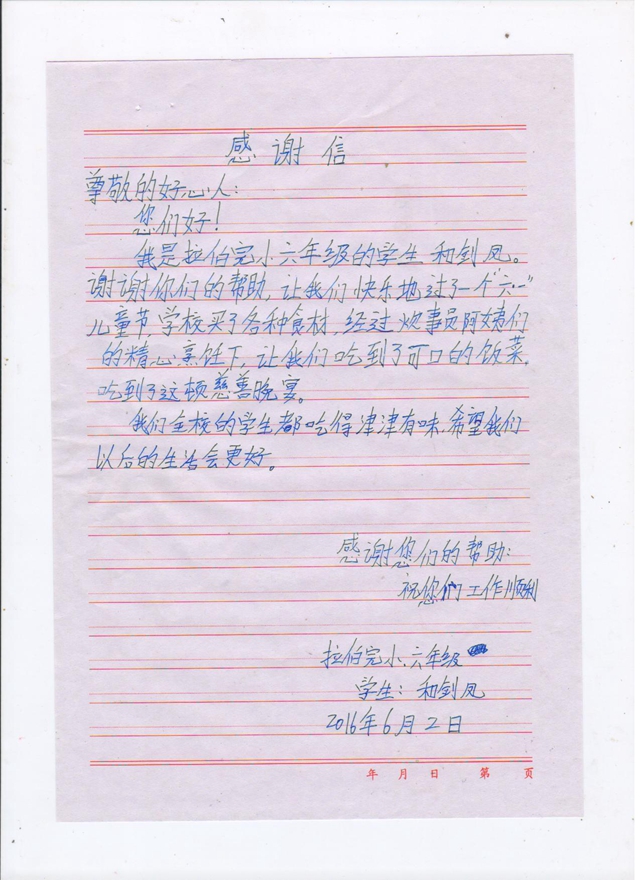 感谢信
尊敬的好心人：
您们好！
我是拉伯完小六年级的学生 和剑凤。
谢谢你们的帮助，让我们快乐地过了一个“六一”
儿童节学校买了各种食材，经过 炊事员阿姨们
的精心烹饪下，让我们吃到了可口的饭菜，
吃到了这顿慈善晚宴。
我们全校的学生都吃得津津有味，希望我们
以后的生活会更好。
感谢您们的帮助：
祝您们工作顺利
拉伯完小六年级
学生：和剑凤
2016年6月2日
年 月 日 第 页